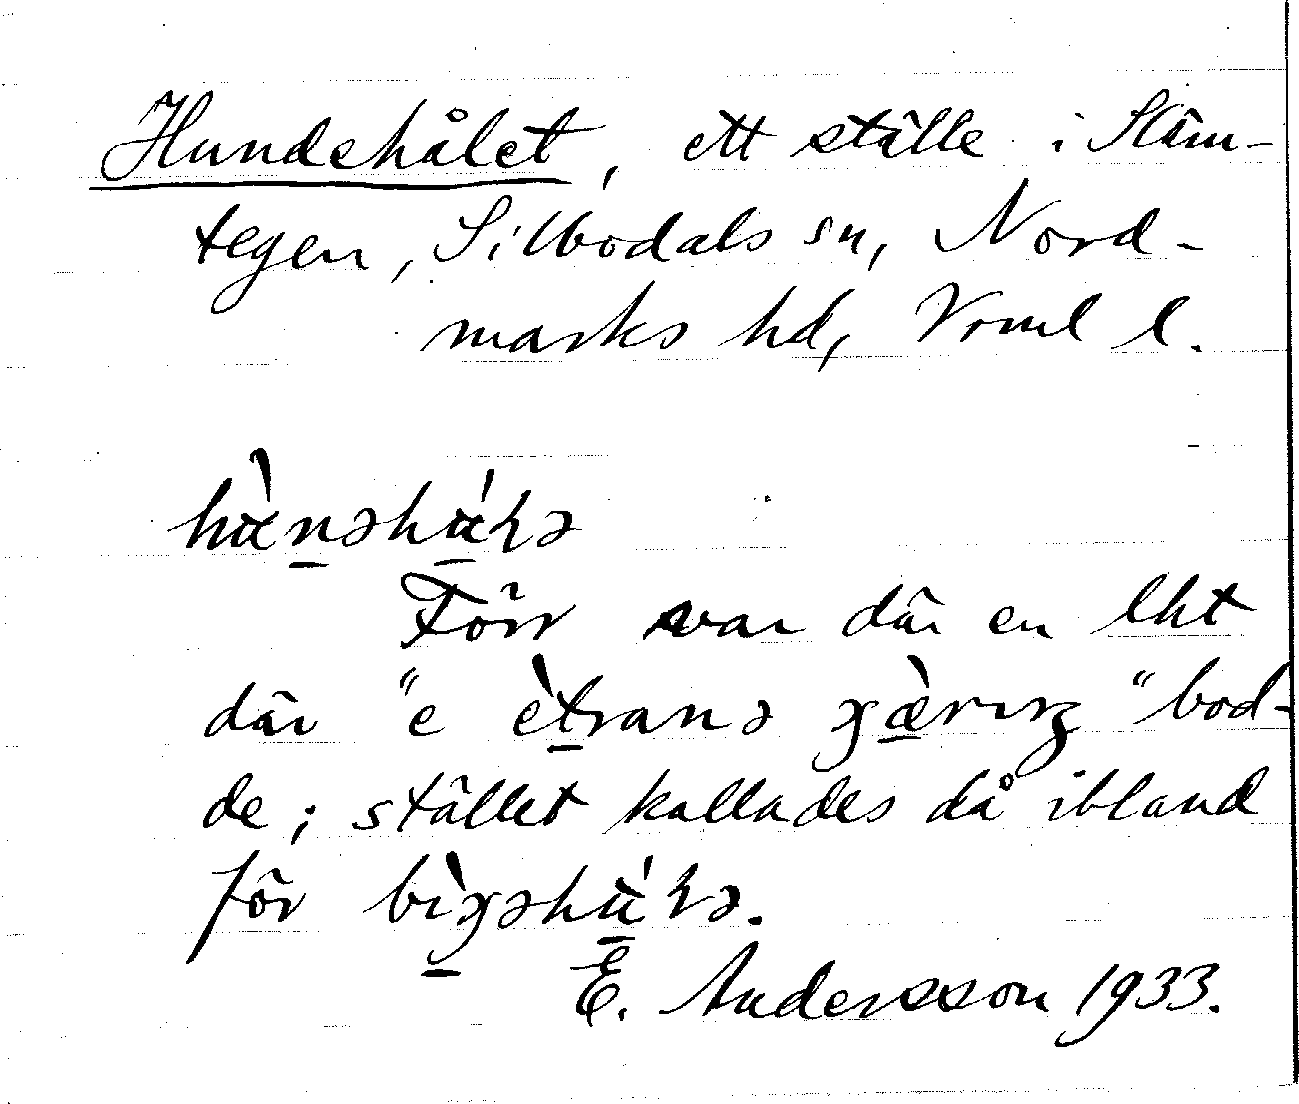 Hundehålet, ett ställe i Släm-
tegen, Silbodals sn, Nord-
marks hd, Vrml l.
hὰnəhά
Förr var där en lht
där "e ètranə gæ̀rıŋ" bod-
de; stället kallades då ibland
för
E. Andersson 1933.